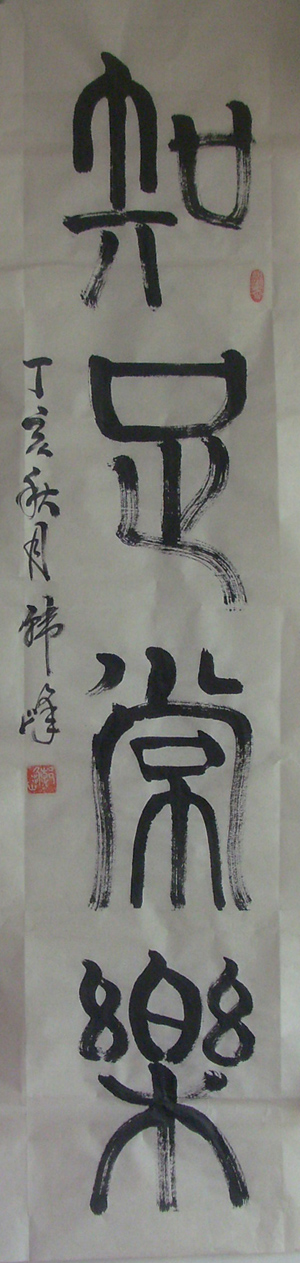 知足常樂
丁亥秋月 韩峰